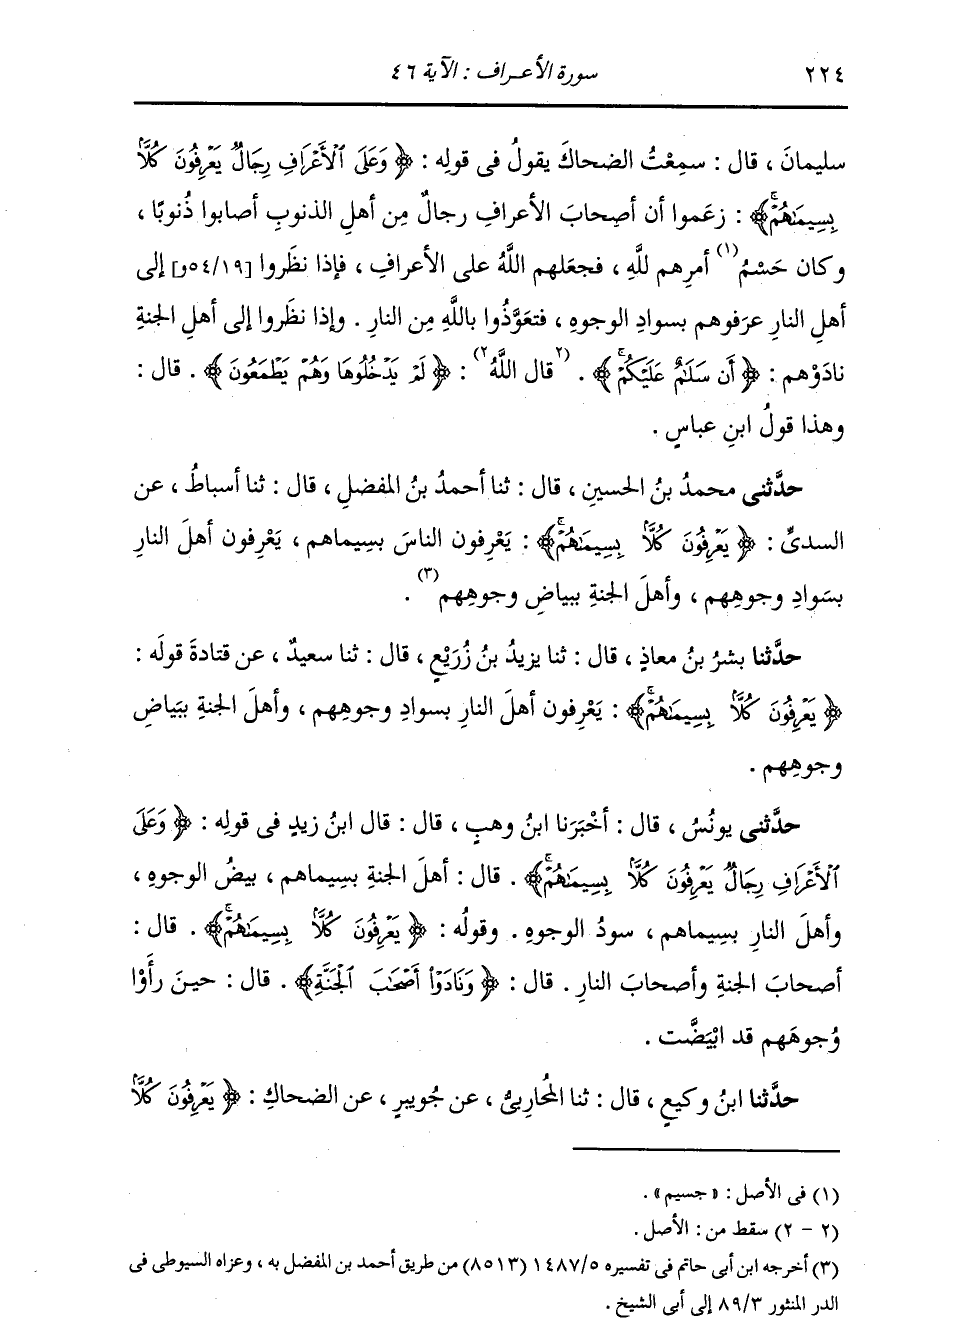 ٢٢٤ سورة الأعراف : الآية ٤٦
سليمانَ ، قال : سمِعْتُ الضحاكَ يقولُ فى قولِه : ﴿ وَعَلَى ٱلْأَعْرَافِ رِجَالٌ يَعْرِفُونَ كُلًّا
بِسِيمَىٰهُمْۚ ﴾ : زعَموا أن أصحابَ الأعرافِ رجالٌ مِن أهلِ الذنوبِ أصابوا ذُنوبًا ،
وكان حَسْمُ(١) أمرِهم للَّهِ ، فجعَلهم اللَّهُ على الأعرافِ ، فإذا نظَروا [٥٤/١٩و] إلى
أهلِ النارِ عرَفوهم بسوادِ الوجوهِ ، فتعَوَّذُوا باللَّهِ مِن النارِ . وإذا نظَروا إلى أهلِ الجنةِ
نادَوْهم : ﴿ أَن سَلَٰمٌ عَلَيْكُمْۚ ﴾ . (٢قال اللَّهُ٢) : ﴿ لَمْ يَدْخُلُوهَا وَهُمْ يَطْمَعُونَ ﴾ . قال :
وهذا قولُ ابنِ عباسٍ .
حدَّثنى محمدُ بنُ الحسينِ ، قال : ثنا أحمدُ بنُ المفضلِ ، قال : ثنا أسباطُ ، عن
السدىِّ : ﴿ يَعْرِفُونَ كُلًّا بِسِيمَىٰهُمْۚ ﴾ : يَعْرِفون الناسَ بسِيماهم ، يَعْرِفون أهلَ النارِ
بسَوادِ وجوهِهم ، وأهلَ الجنةِ ببياضِ وجوهِهم(٣) .
حدَّثنا بشرُ بنُ معاذٍ ، قال : ثنا يزيدُ بنُ زُرَيْعٍ ، قال : ثنا سعيدٌ ، عن قتادةَ قولَه :
﴿ يَعْرِفُونَ كُلًّا بِسِيمَىٰهُمْۚ ﴾ : يَعْرِفون أهلَ النارِ بسوادِ وجوهِهم ، وأهلَ الجنةِ ببَياضِ
وجوهِهم .
حدَّثنى يونُسُ ، قال : أخْبَرَنا ابنُ وهبٍ ، قال : قال ابنُ زيدٍ فى قولِه : ﴿ وَعَلَى
ٱلْأَعْرَافِ رِجَالٌ يَعْرِفُونَ كُلًّا بِسِيمَىٰهُمْۚ ﴾ . قال : أهلَ الجنةِ بسِيماهم ، بيضُ الوجوهِ ،
وأهلَ النارِ بسِيماهم ، سودُ الوجوهِ . وقولُه : ﴿ يَعْرِفُونَ كُلًّا بِسِيمَىٰهُمْۚ ﴾ . قال :
أصحابَ الجنةِ وأصحابَ النارِ . قال : ﴿ وَنَادَوْا۟ أَصْحَٰبَ ٱلْجَنَّةِ ﴾ . قال : حينَ رأَوْا
وُجوهَهم قد ابْيَضَّت .
حدَّثنا ابنُ وكيعٍ ، قال : ثنا المُحاربىُّ ، عن جُويبرٍ ، عن الضحاكِ : ﴿ يَعْرِفُونَ كُلًّا
(١) فى الأصل : « جسيم » .
(٢ - ٢) سقط من : الأصل .
(٣) أخرجه ابن أبى حاتم فى تفسيره ١٤٨٧/٥ (٨٥١٣) من طريق أحمد بن المفضل به ، وعزاه السيوطى فى
الدر المنثور ٨٩/٣ إلى أبى الشيخ .